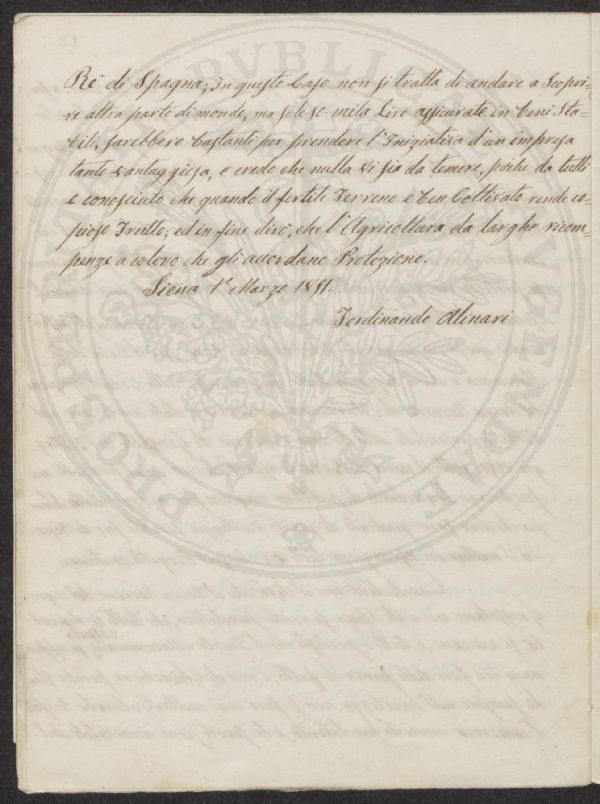 Rè di Spagna; In questo Caso non si tratta di andare a Scopri-
re altra parte di mondo, ma sole 50 mila Lire assicurate in Beni Sta-
bili, sarebbere bastanti per prendere l'Iniziativa d'un impresa
tante vantaggiosa, e credo che nulla vi sia da temere, poiche da tutti
e conosciuto che quando il fertile Terreno e ben Coltivato rende co-
pioso Frutto; ed in fine dirò, che l'Agricoltura da larghe ricom-
penze a coloro che gli accordano Protezione.
Siena 1º Marzo 1891.
Ferdinando Alinari
PROSPERITATI PVBLICAE AVGENDAE